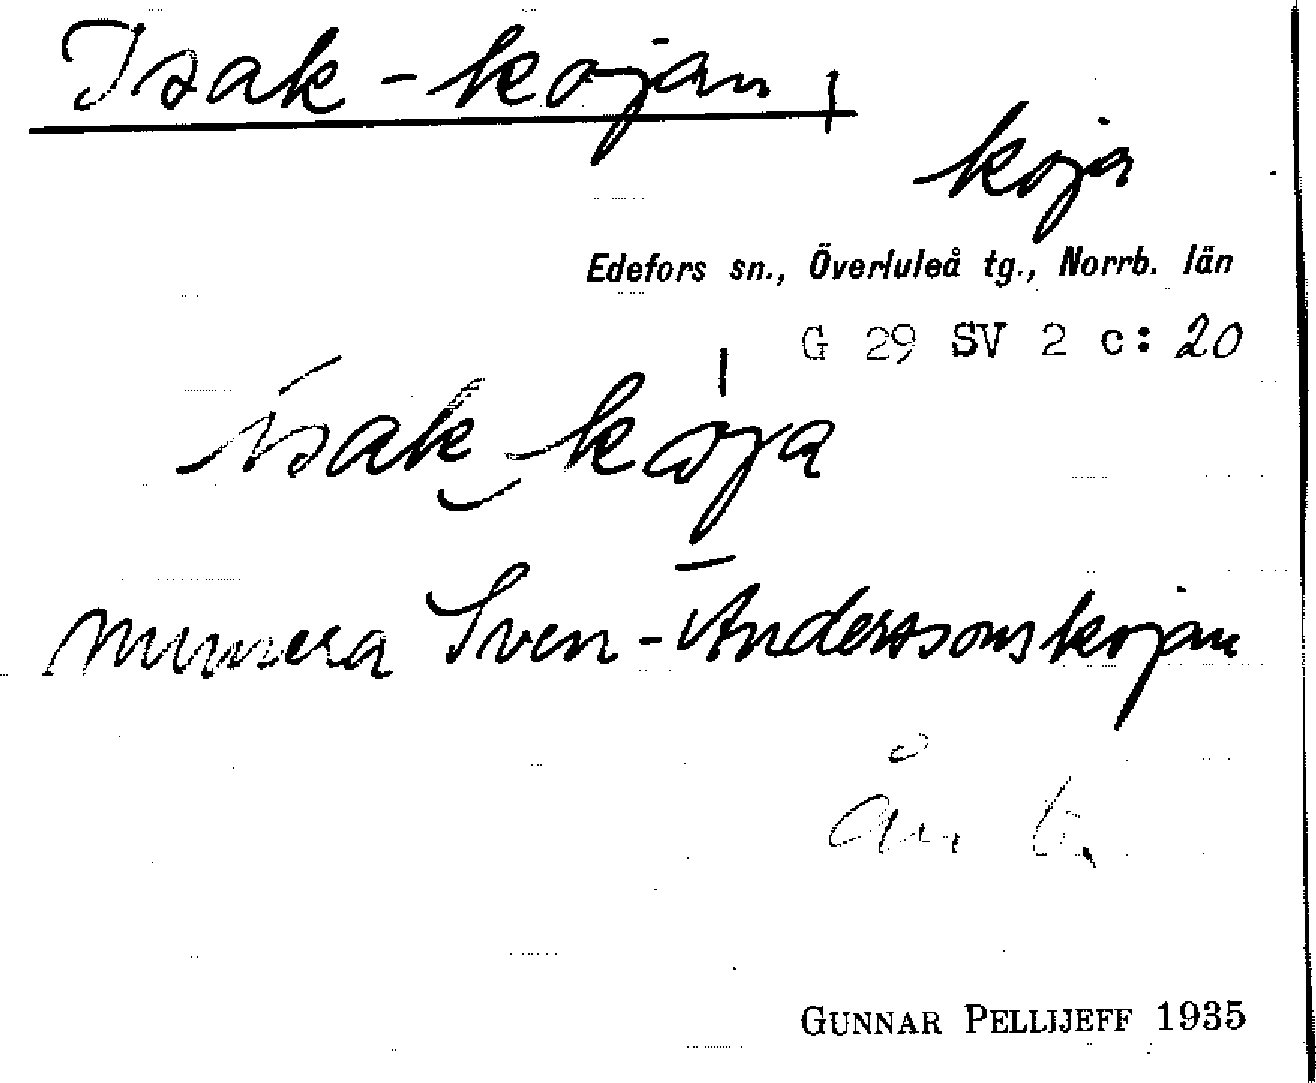 Isak-kojan,
koja
Edefors sn., Överluleå tg., Norrb. län
G 29 SV 2 c: 20
isak-kåja
numera Sven-Anderssonskojan
GUNNAR PELLIJEFF 1935